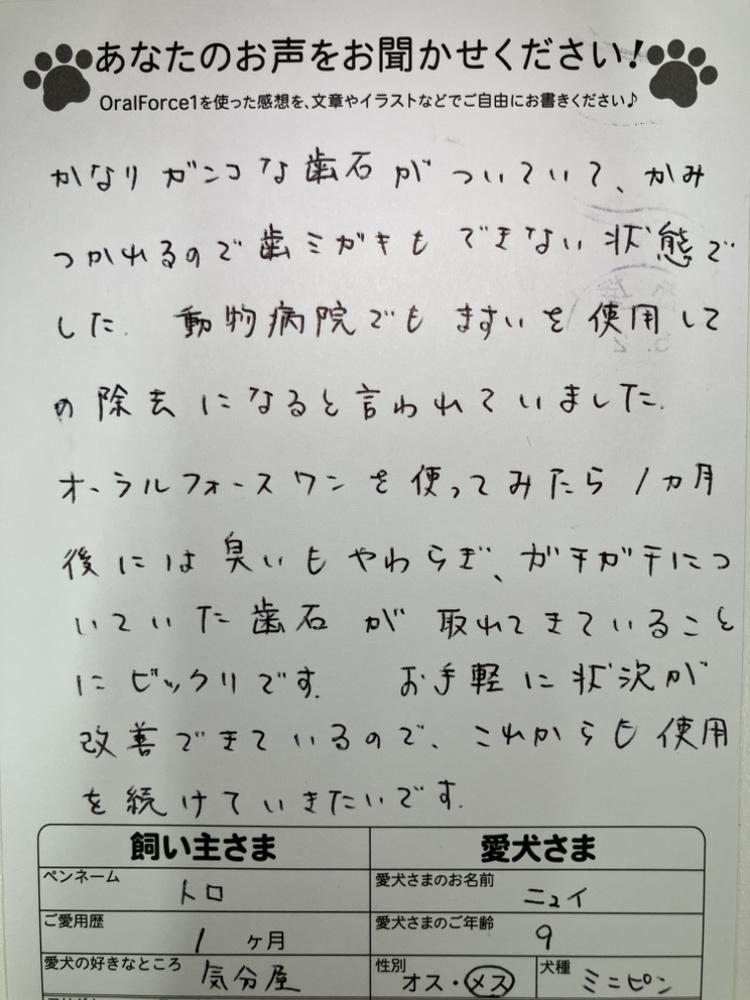 あなたのお声をお聞かせください!
OralForce1を使った感想を、文章やイラストなどでご自由にお書きください♪
かなりガンコな歯石がついていて、かみ
つかれるので歯ミガキもできない状態で
した. 動物病院でもますいを使用して
の除去になると言われていました.
オーラルフォースワンを使ってみたら1カ月
後には臭いもやわらぎ、ガチガチにつ
いていた歯石が取れてきていること
にビックリです. お手軽に状況が
改善できているので、これからも使用
を続けていきたいです.
飼い主さま 愛犬さま
ペンネーム トロ 愛犬さまのお名前 ニュイ
ご愛用歴 1 ヶ月 愛犬さまのご年齢 9
愛犬の好きなところ 気分屋 性別 オス・メス 犬種 ミニピン